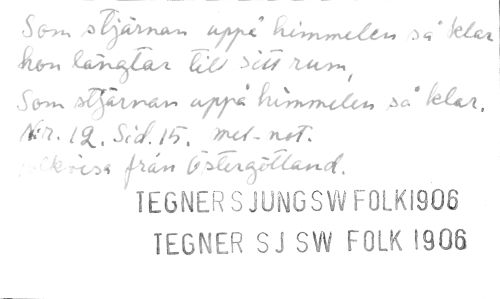 Som stjärnan uppå himmelen så klar
hon längtar till sitt rum,
Som stjärnan uppå himmelen så klar.
Nr. 12. Sid. 15. mel-not.
Folkvisa från Östergötland.
TEGNER SJUNG SW FOLK 1906
TEGNER SJ SW FOLK 1906